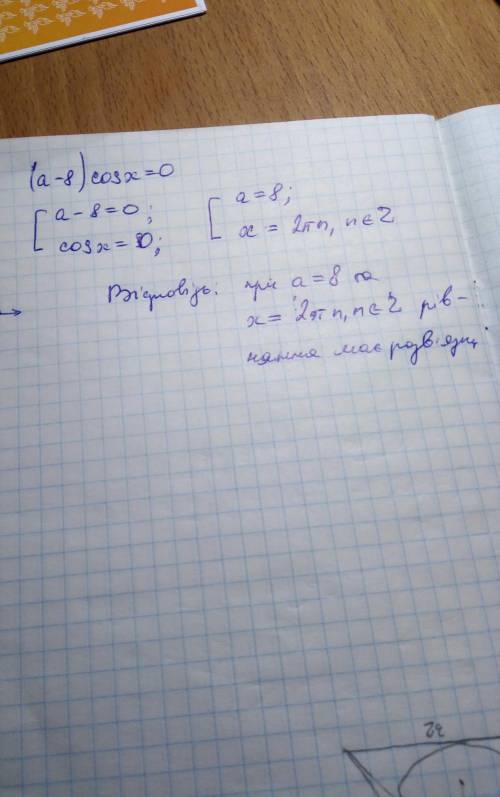 (a-8)cosx=0
[ a-8=0; [ a=8;
cosx=0; x=2πn, n∈Z
Відповідь: при a=8 та
x=2πn, n∈Z рів-
няння має розв'язки